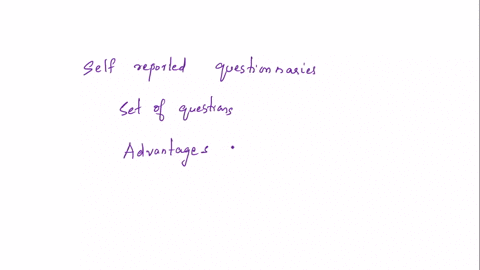 Self reported questionnaries
Set of questions
Advantages .